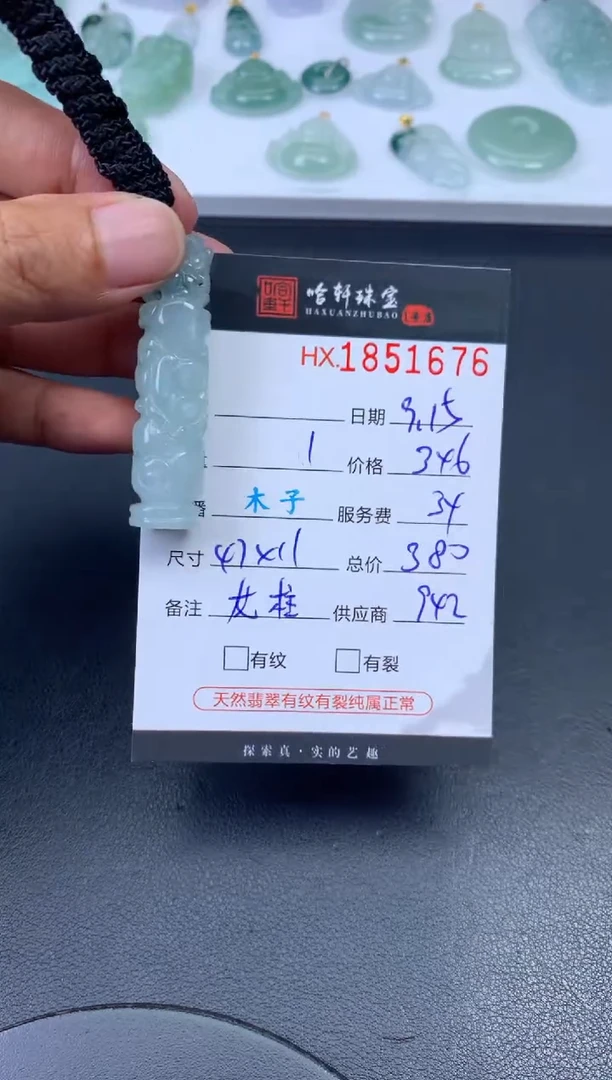 哈轩珠宝
HAXUANZHUBAO
HX.1851676
日期 9.15
1 价格 346
播 木子 服务费 34
尺寸 47×11 总价 380
备注 龙柱 供应商 942
有纹 有裂
天然翡翠有纹有裂纯属正常
探索真·实的艺趣